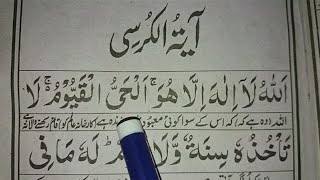 آیۃ الکرسی
اَللّٰهُ لَاۤ اِلٰهَ اِلَّا هُوَ ۚ اَلْحَیُّ الْقَیُّوْمُ ۚ لَا
اللہ وہ ہے کہ اس کے سوا کوئی معبود
تَاْخُذُهٗ سِنَةٌ وَّلَا لَهٗ مَا فِی